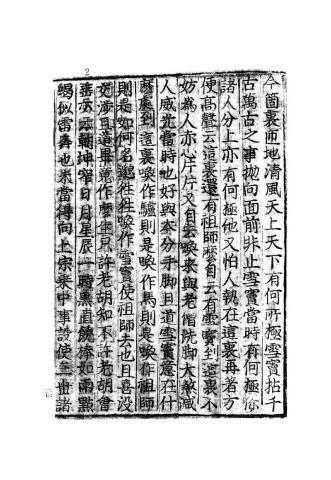 今箇裏匝地清風天上天下有何所極雪竇拈千
古萬古之事拋向面前非止雪竇當時有何極你
諸人分上亦有何極他又怕人執在這裏再著方
便高聲云這裏還有祖師麼自云有雪竇到這裏不
妨為人赤心片片又自云喚來與老僧洗脚太煞減
人威光當時也好與本分手脚且道雪竇意在什
麼處到這裏喚作驢則是喚作馬則是喚作祖師
則是如何名邈往往喚作雪竇使祖師去也且喜沒
交涉且道畢竟作麼生只許老胡知不許老胡會
垂示云乾坤窄日月星辰一時黑直饒棒如雨點
喝似雷奔也未當得向上宗乘中事設使三世諸
2